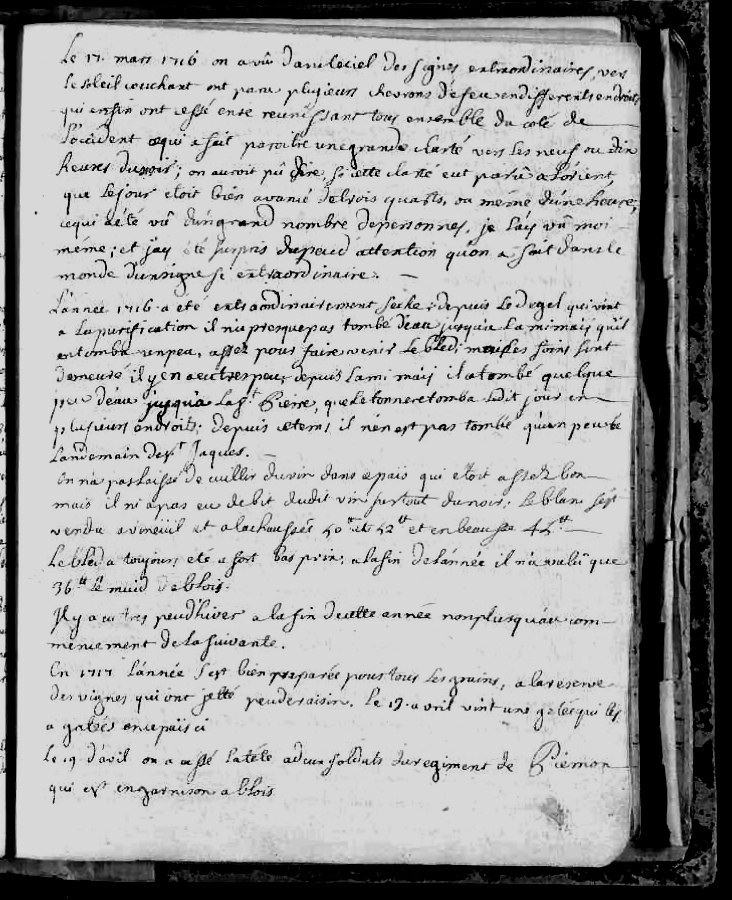 Le 17. mars 1716 on a vû dans leciel des signes extraordinaires, vers
le soleil couchant ont paru plusieurs chevrons de feu en differents endroits
qui enfin ont cessé en se reunissant tous ensemble du coté de
l'occident cequi a fait paroitre une grande clarté vers les neuf ou dix
heures du soir; on auroit pû dire, si cette clarté eut paru a lorient
que le jour etoit bien avancé de trois quarts, ou même dune heure;
cequi a été vû dun grand nombre depersonnes, je l'ay vû moi
meme; et jay été surpris du peu d'attention qu'on a fait dans le
monde d'un signe si extraordinaire.
L'année 1716 a eté extraordinairement seche; depuis le degel qui vint
a la purification il n'a presque pas tombé d'eau jusqu'a la mi mai qu'il
en tomba un peu, assez pour faire venir le bled; mais les foins sont
demeuré il y en a eu tres peu; depuis la mi mai il a tombé quelque
peu d'eau jusqu'a la st Pierre, que le tonnere tomba ledit jour en
plusieurs endroits; depuis ce tems il n'en est pas tombé qu'un peu le
landemain de st Jaques.
On n'a pas laissé de cuillir du vin dans ce païs qui etoit assez bon
mais il ni a pas eu de debit dudit vin surtout du noir; le blanc sest
vendu a vineüil et a la chaussée 50tt et 52tt et en beausse 45tt
Le bled a toujours eté a fort bas prix; a la fin de l'année il n'a valu que
36tt le muid de blois.
Il y a eu tres peu d'hiver a la fin de cette année non plus qu'au com-
mencement de la suivante.
En 1717 l'année s'est bien preparée pour tous les grains, a la reserve
des vignes qui ont jetté peu de raisin. Le 19. avril vint une gelée qui les
a gatées en ce païs ci
Le 19 d'avil on a cassé la tête a deux soldats du regiment de Piémon
qui est en garnison a blois